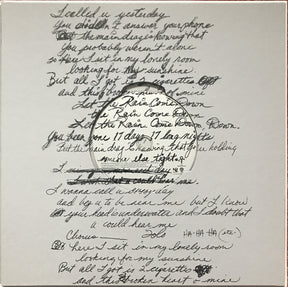 I called u yesterday
You didn't answer your phone
But the main drag is knowing that
You probably weren't alone
So here I sit in my lonely room
looking for my sunshine
But all I got is 2 cigarettes
and this broken heart of mine
Let the Rain Come Down
the Rain Come Down
Let the Rain Come Down, Down.
You been gone 17 days 17 long nights
But the main drag is knowing that ur holding
someone else tight
I wanna call u everyday
and beg u to be near me but I know
your head is underwater and I doubt that
u could hear me
Chorus — Solo HA-HA-HA
So here I sit in my lonely room
looking for my sunshine
But all I got is 2 cigarettes
and this broken heart o mine